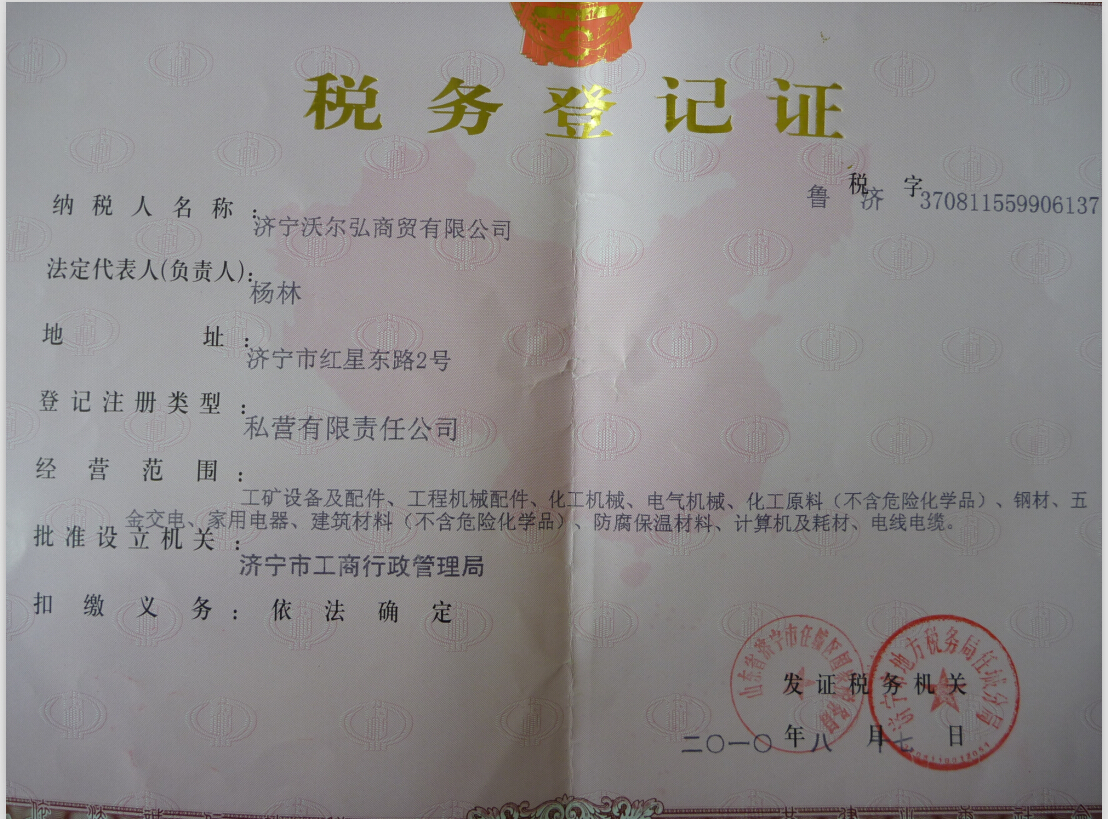 税务登记证
鲁济税字370811559906137
纳税人名称：济宁沃尔弘商贸有限公司
法定代表人(负责人)：杨林
地址：济宁市红星东路2号
登记注册类型：私营有限责任公司
经营范围：工矿设备及配件、工程机械配件、化工机械、电气机械、化工原料（不含危险化学品）、钢材、五
金交电、家用电器、建筑材料（不含危险化学品）、防腐保温材料、计算机及耗材、电线电缆。
批准设立机关：济宁市工商行政管理局
扣缴义务：依法确定
山东省济宁市任城区国家税务局
济宁市地方税务局任城分局
发证税务机关
二〇一〇年八月十七日